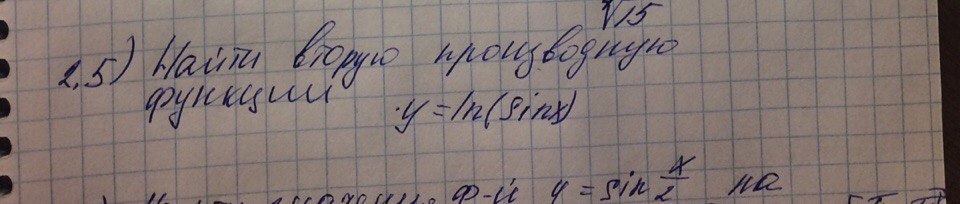 √15
2,5) Найти вторую производную
функции y=ln(sinx)
ф-и y = sin x/2 на